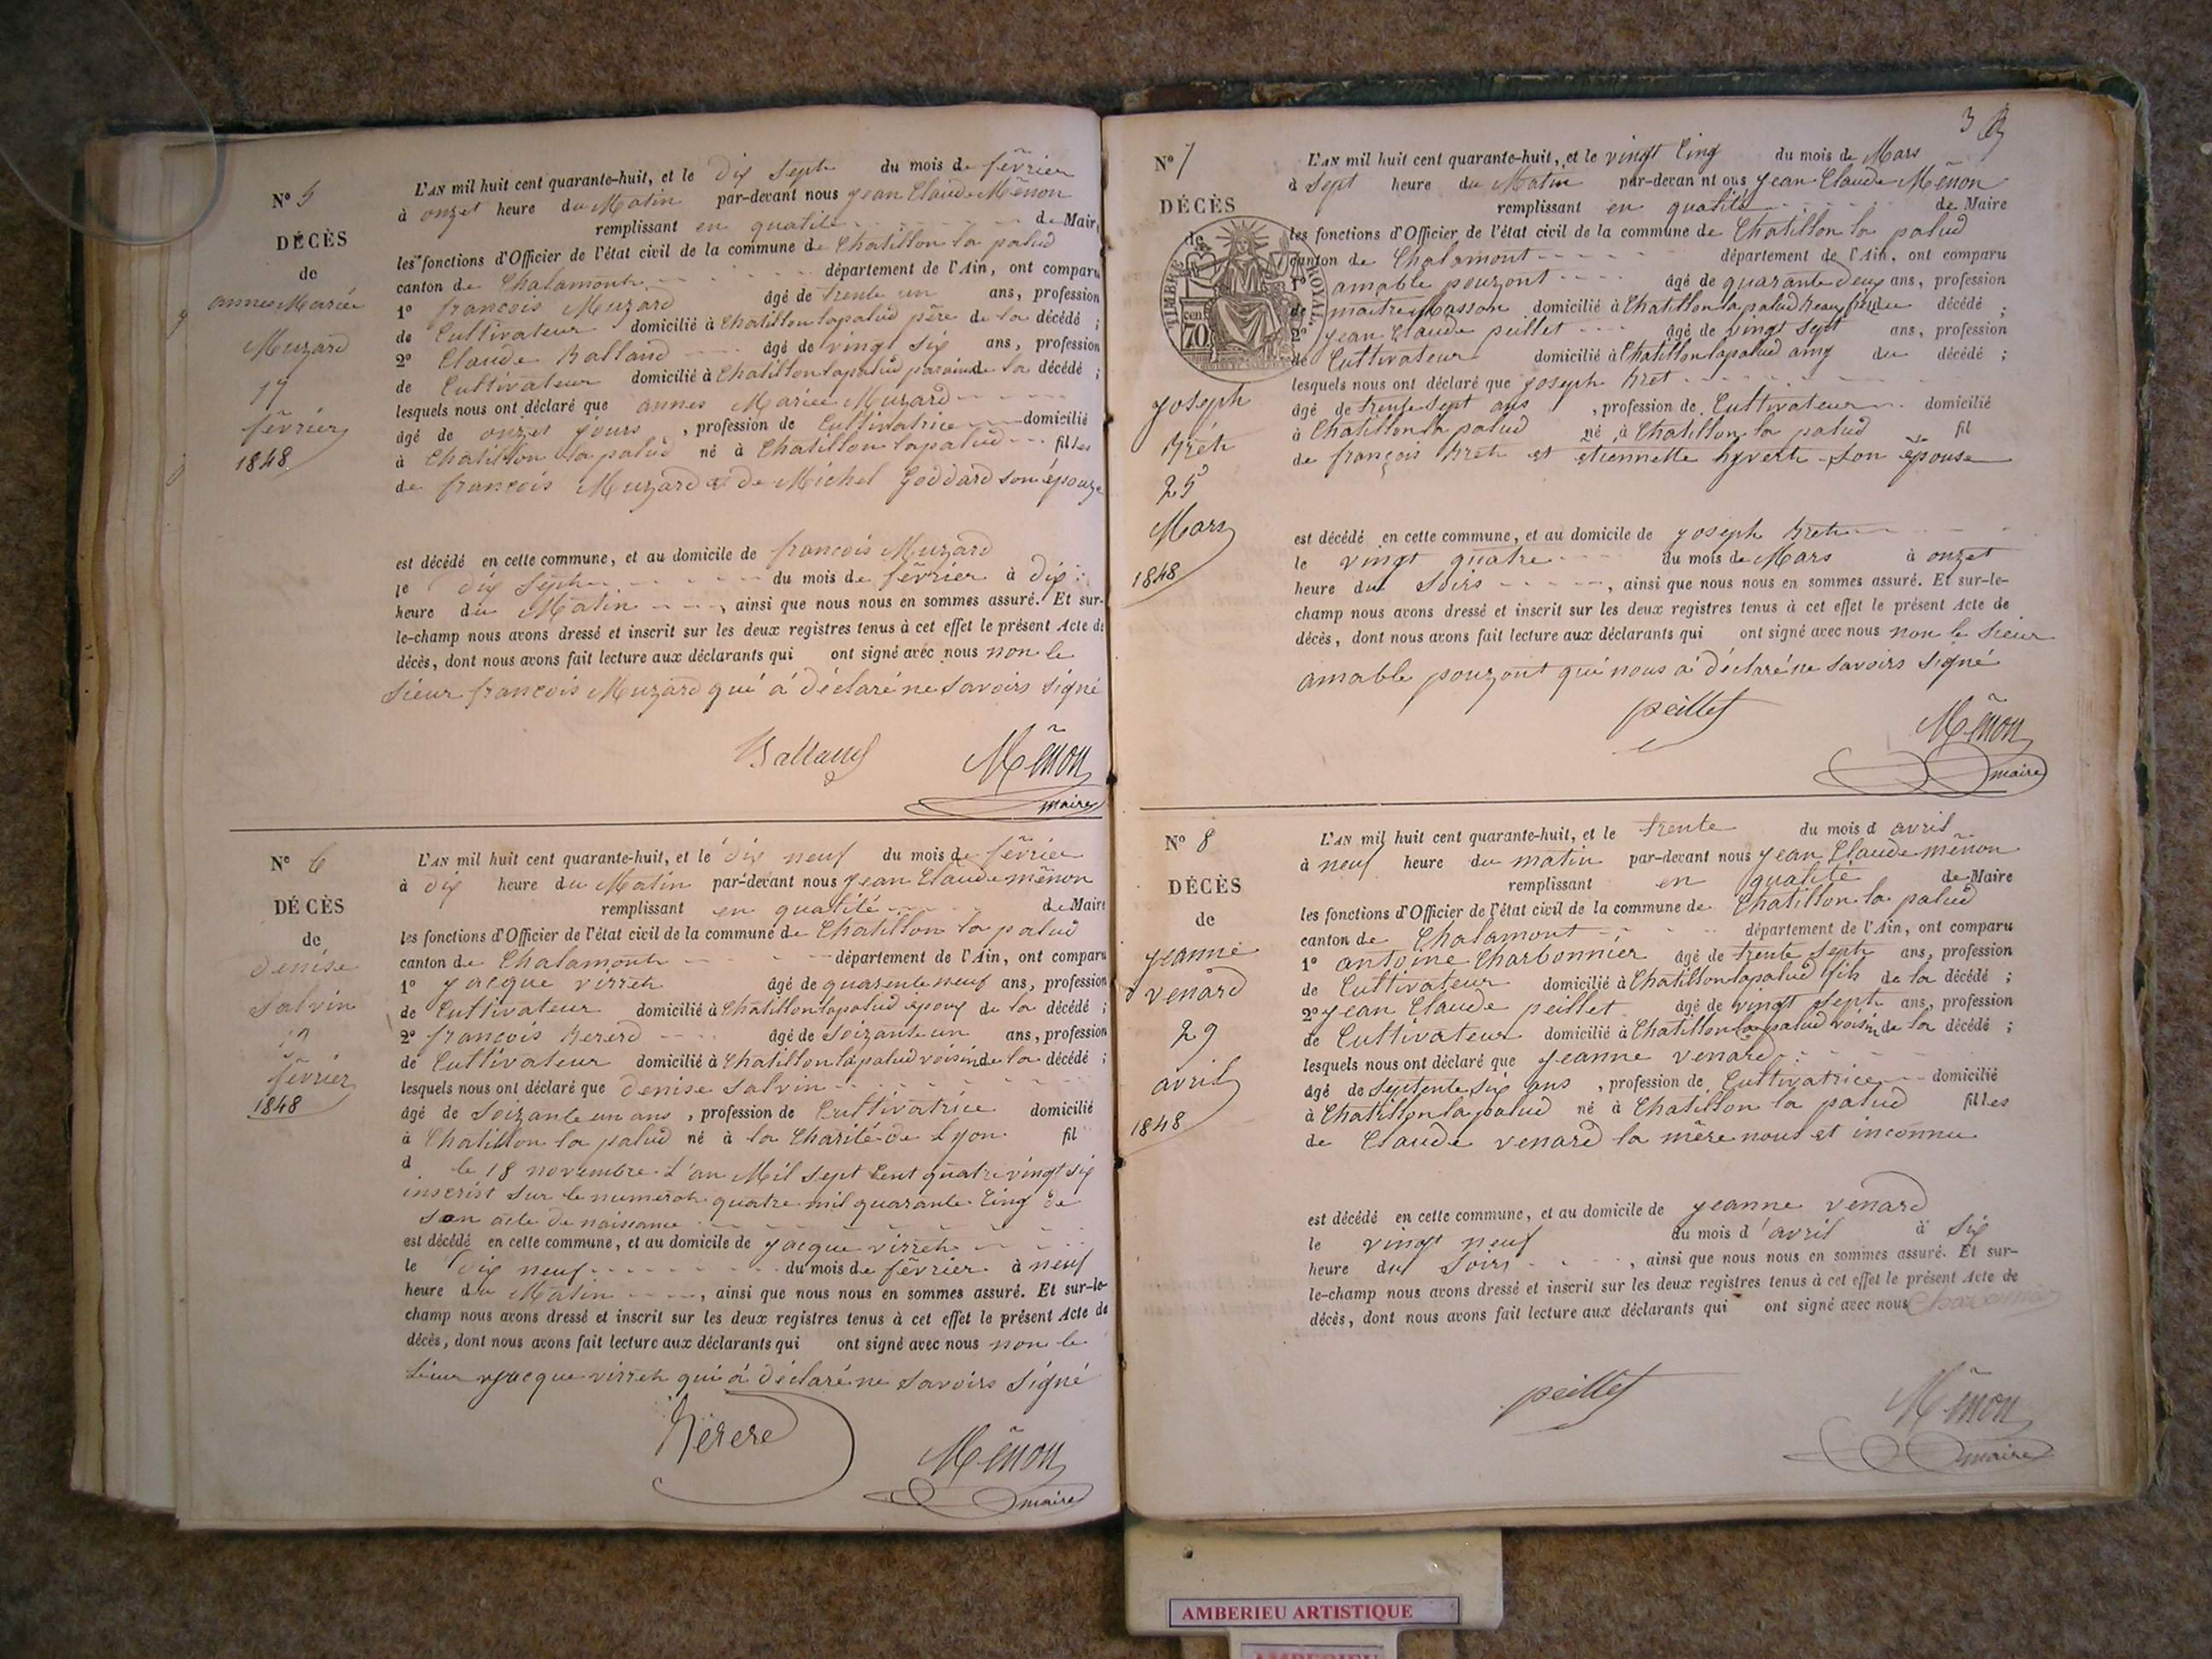 N° 5
DÉCÈS
de
annes Mariée
Muzard
17
février
1848
L'AN mil huit cent quarante-huit, et le dix sept du mois de février
à onzet heure du Matin par-devant nous jean Claude Mênon
remplissant en qualité de Maire
les fonctions d'Officier de l'état civil de la commune de Chatillon la palud
canton de Chalamont département de l'Ain, ont comparu
1° françois Muzard âgé de trente un ans, profession
de Cultivateur domicilié à Chatillon lapalud père de la décédé ;
2° Claude Balland âgé de vingt six ans, profession
de Cultivateur domicilié à Chatillon lapalud parain de la décédé ;
lesquels nous ont déclaré que annes Mariée Muzard
âgé de onzet jours , profession de Cultivatrice domicilié
à Chatillon la palud né à Chatillon lapalud filles
de françois Muzard et de Michel Goddard son épouze
est décédé en cette commune, et au domicile de françois Muzard
le dix sept du mois de février à dix
heure du Matin , ainsi que nous nous en sommes assuré. Et sur-
le-champ nous avons dressé et inscrit sur les deux registres tenus à cet effet le présent Acte de
décès, dont nous avons fait lecture aux déclarants qui ont signé avec nous non le
sieur françois Muzard qui a déclaré ne savoirs signé
Balland
Mênon
maire
N° 6
DÉCÈS
de
denise
salvin
19
février
1848
L'AN mil huit cent quarante-huit, et le dix neuf du mois de février
à dix heure du Matin par-devant nous jean Claude mênon
remplissant en qualité de Maire
les fonctions d'Officier de l'état civil de la commune de Chatillon la palud
canton de Chalamont département de l'Ain, ont comparu
1° jacque virret âgé de quarente neuf ans, profession
de Cultivateur domicilié à Chatillon lapalud époux de la décédé ;
2° françois Bererd âgé de soizante un ans, profession
de Cultivateur domicilié à Chatillon lapalud voisin de la décédé ;
lesquels nous ont déclaré que denise salvin
âgé de soizante un ans , profession de Cultivatrice domicilié
à Chatillon la palud né à la Charité de Lyon fil
d le 18 novembre L'an Mil sept Cent quatre vingt six
inscrist sur le numerot quatre mil quarante Cinq de
son acte de naissance
est décédé en cette commune, et au domicile de jacque virret
le dix neuf du mois de février à neuf
heure du Matin , ainsi que nous nous en sommes assuré. Et sur-le-
champ nous avons dressé et inscrit sur les deux registres tenus à cet effet le présent Acte de
décès, dont nous avons fait lecture aux déclarants qui ont signé avec nous non le
sieur jacque virret qui a déclaré ne savoirs signé
Bererd
Mênon
maire
3
N° 7
DÉCÈS
de
TIMBRE ROYAL
cen
70
joseph
Bret
25
Mars
1848
L'AN mil huit cent quarante-huit, et le vingt Cinq du mois de Mars
à sept heure du Matin par-devan nt ous jean Claude Mênon
remplissant en qualité de Maire
les fonctions d'Officier de l'état civil de la commune de Chatillon la palud
canton de Chalamont département de l'Ain, ont comparu
1° amable pouzont âgé de quarante deux ans, profession
de maitre Masson domicilié à Chatillon lapalud du décédé ;
2° jean Claude peillet âgé de vingt sept ans, profession
de Cultivateur domicilié à Chatillon lapalud amy du décédé ;
lesquels nous ont déclaré que joseph Bret
âgé de trente sept ans , profession de Cultivateur domicilié
à Chatillon la palud né à Chatillon la palud fil
de françois Bret et etiennette hyvert son épouse
est décédé en cette commune, et au domicile de joseph Bret
le vingt quatre du mois de Mars à onzet
heure du soirs , ainsi que nous nous en sommes assuré. Et sur-le-
champ nous avons dressé et inscrit sur les deux registres tenus à cet effet le présent Acte de
décès, dont nous avons fait lecture aux déclarants qui ont signé avec nous non le sieur
amable pouzont qui nous a déclaré ne savoirs signé
peillet
Mênon
maire
N° 8
DÉCÈS
de
jeanne
venard
29
avril
1848
L'AN mil huit cent quarante-huit, et le trente du mois d avril
à neuf heure du matin par-devant nous jean Claude mênon
remplissant en qualité de Maire
les fonctions d'Officier de l'état civil de la commune de Chatillon la palud
canton de Chalamont département de l'Ain, ont comparu
1° antoine Charbonnier âgé de trente sept ans, profession
de Cultivateur domicilié à Chatillon lapalud fils de la décédé ;
2° jean Claude peillet âgé de vingt sept ans, profession
de Cultivateur domicilié à Chatillon la palud voisin de la décédé ;
lesquels nous ont déclaré que jeanne venard
âgé de septente six ans , profession de Cultivatrice domicilié
à Chatillon la palud né à Chatillon la palud filles
de Claude venard la mère nous et inconnu
est décédé en cette commune, et au domicile de jeanne venard
le vingt neuf du mois d'avril à six
heure du soirs , ainsi que nous nous en sommes assuré. Et sur-
le-champ nous avons dressé et inscrit sur les deux registres tenus à cet effet le présent Acte de
décès, dont nous avons fait lecture aux déclarants qui ont signé avec nous
peillet
Mênon
maire
AMBERIEU ARTISTIQUE
AMBERIEU